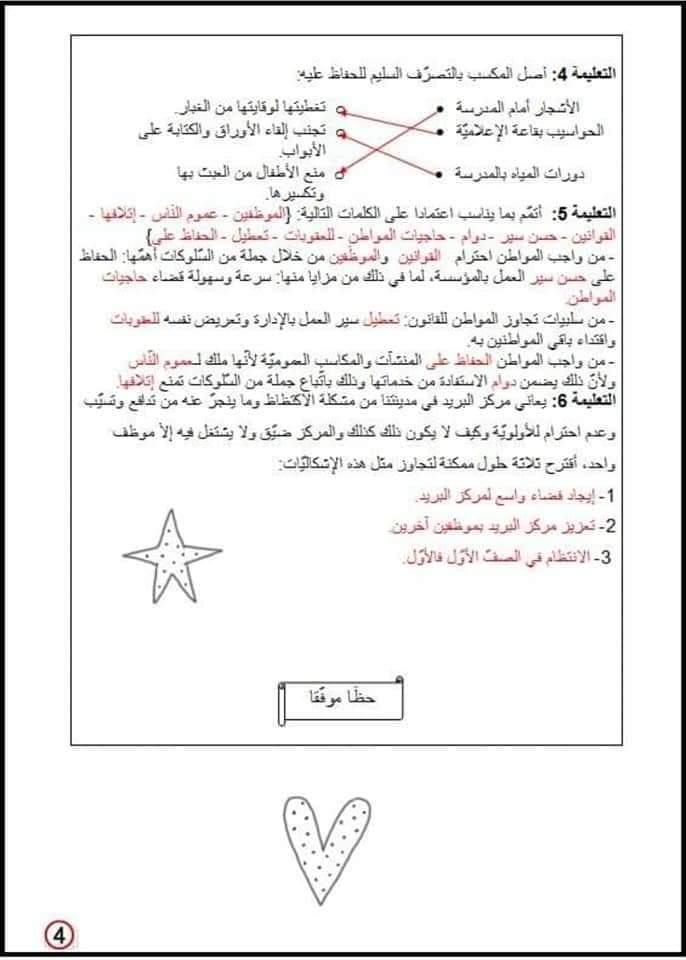 التعليمة 4: أصل المكسب بالتصرّف السليم للحفاظ عليه:
الأشجار أمام المدرسة
تغطيتها لوقايتها من الغبار.
الحواسيب بقاعة الإعلاميّة
تجنب إلقاء الأوراق والكتابة على
الأبواب.
دورات المياه بالمدرسة
منع الأطفال من العبث بها
وتكسيرها.
التعليمة 5: أتمّم بما يناسب اعتمادا على الكلمات التالية: {الموظفين - عموم النّاس - إتلافها -
القوانين - حسن سير - دوام - حاجيات المواطن - للعقوبات - تعطيل - الحفاظ على}
- من واجب المواطن احترام القوانين والموظفين من خلال جملة من السّلوكات أهمّها: الحفاظ
على حسن سير العمل بالمؤسسة، لما في ذلك من مزايا منها: سرعة وسهولة قضاء حاجيات
المواطن.
- من سلبيات تجاوز المواطن للقانون: تعطيل سير العمل بالإدارة وتعريض نفسه للعقوبات
واقتداء باقي المواطنين به.
- من واجب المواطن الحفاظ على المنشآت والمكاسب العموميّة لأنّها ملك لـعموم النّاس
ولأنّ ذلك يضمن دوام الاستفادة من خدماتها وذلك باتّباع جملة من السّلوكات تمنع إتلافها.
التعليمة 6: يعاني مركز البريد في مدينتنا من مشكلة الاكتظاظ وما ينجرّ عنه من تدافع وتسيّب
وعدم احترام للأولويّة وكيف لا يكون ذلك كذلك والمركز ضيّق ولا يشتغل فيه إلاّ موظف
واحد، أقترح ثلاثة حلول ممكنة لتجاوز مثل هذه الإشكاليّات:
1- إيجاد فضاء واسع لمركز البريد.
2- تعزيز مركز البريد بموظفين آخرين.
3- الانتظام في الصفّ الأوّل فالأوّل.
حظّا موفّقا
4